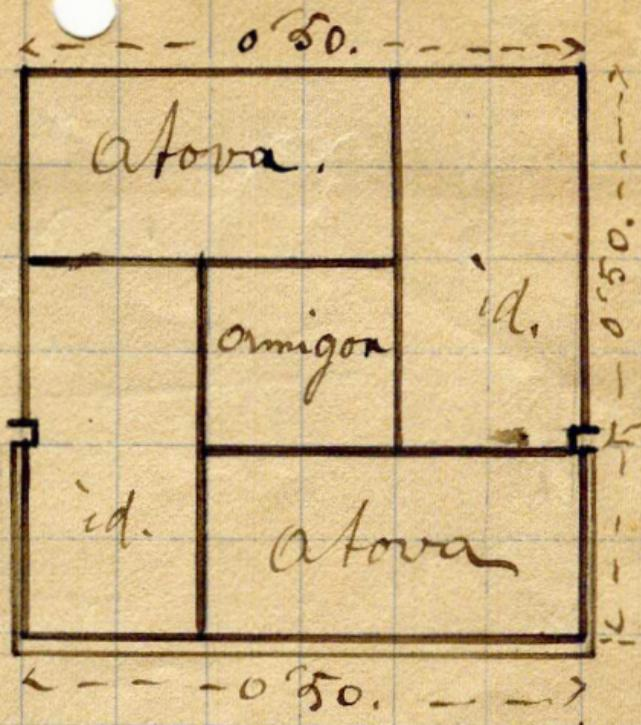 0'50.
atova.
id.
0'50.
ormigon
id.
atova
0'50.